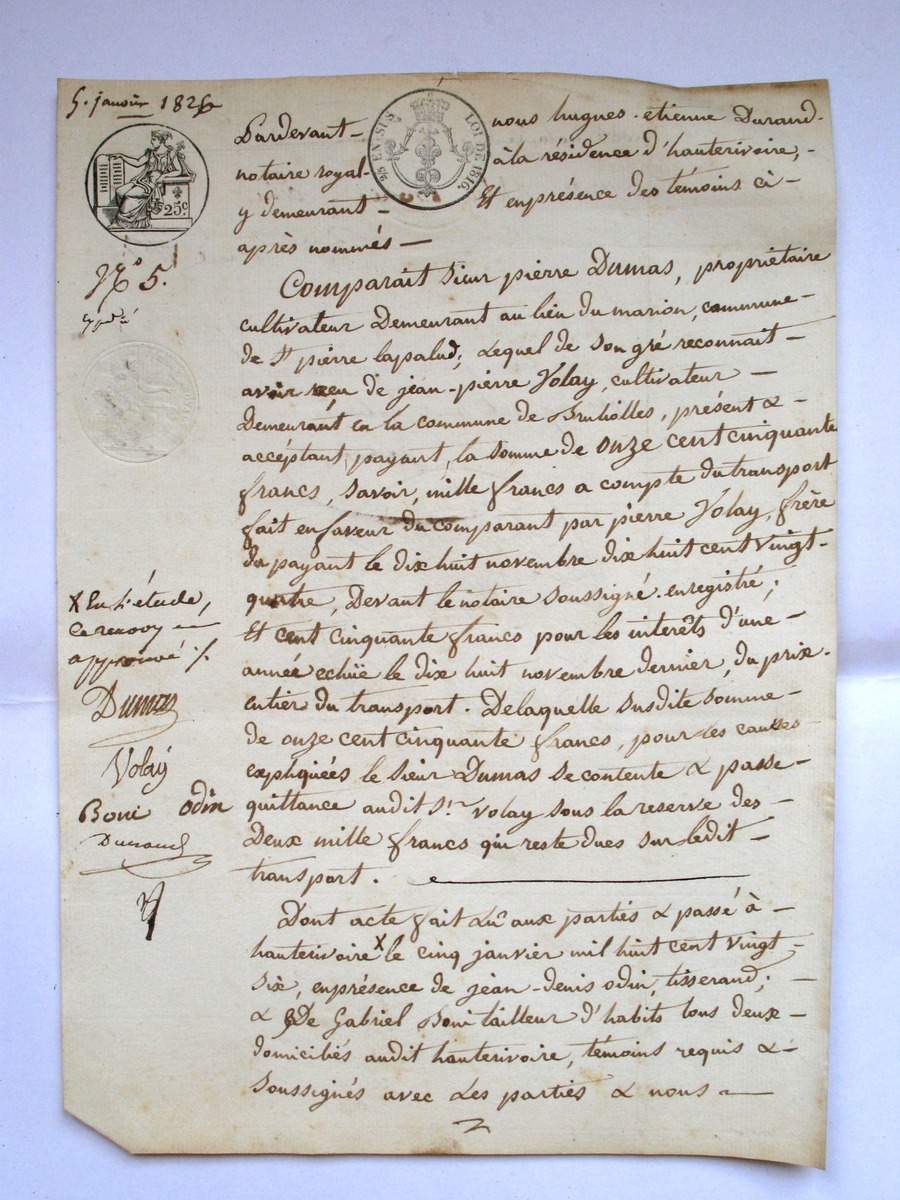 5. janvier 1826
25 EN SUS
LOI DE 1816.
25c
No 5.
expédié
Pardevant — nous hugues-étienne Durand.
notaire royal à la résidence d'hauterivoire, —
y demeurant — Et en présence des témoins ci —
après nommés —
Comparait Sieur pierre Dumas, propriétaire
cultivateur Demeurant au lieu du marion, commune —
de St pierre lapalud; Lequel de son gré reconnait —
avoir reçu de jean-pierre Volay, cultivateur —
Demeurant en la commune de Brulliolles, présent & —
accéptant, payant, la somme de onze cent cinquante
francs, savoir, mille francs a compte du transport
fait en faveur du comparant par pierre Volay, frère
du payant le dix huit novembre dix huit cent vingt-
quatre, Devant le notaire soussigné. enregistré;
Et cent cinquante francs pour les interêts d'une —
année echüe le dix huit novembre dernier, du prix.
entier du transport. Delaquelle susdite somme —
de onze cent cinquante francs, pour les causes
expliquées le sieur Dumas se contente & passe —
quittance audit Sr. Volay sous la reserve des —
Deux mille francs qui reste dues sur ledit —
transport.
Dont acte fait Lu aux parties & passé à —
hauterivoire X le cinq janvier mil huit cent vingt —
six, en présence de jean-denis odin, tisserand; —
& De Gabriel Boni tailleur d'habits tous deux —
domiciliés audit hauterivoire, témoins requis & —
soussignés avec Les parties & nous —
X En L'étude,
ce renvoy —
approuvé ./.
Dumas
Volay
Boni odin
Durand